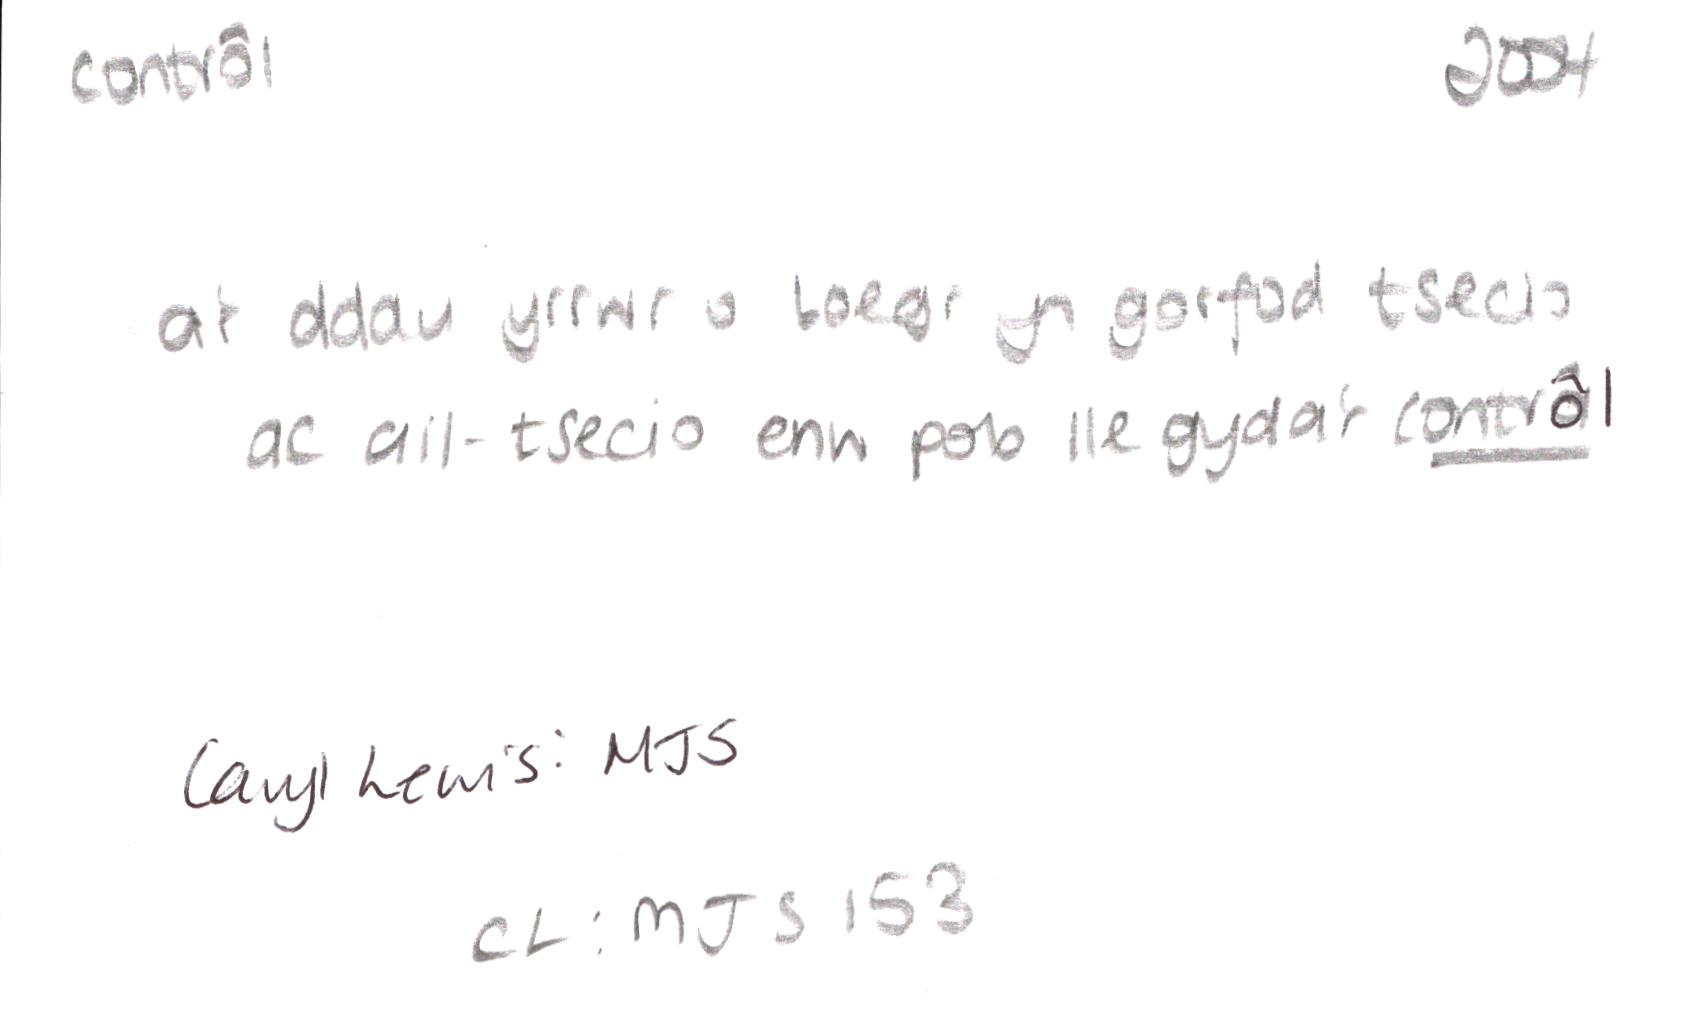 contrôl 2004
a'r ddau yrrwr o Loegr yn gorfod tsecio
ac ail-tsecio enw pob lle gyda'r contrôl
Caryl Lewis: MJS
CL: MJS 153